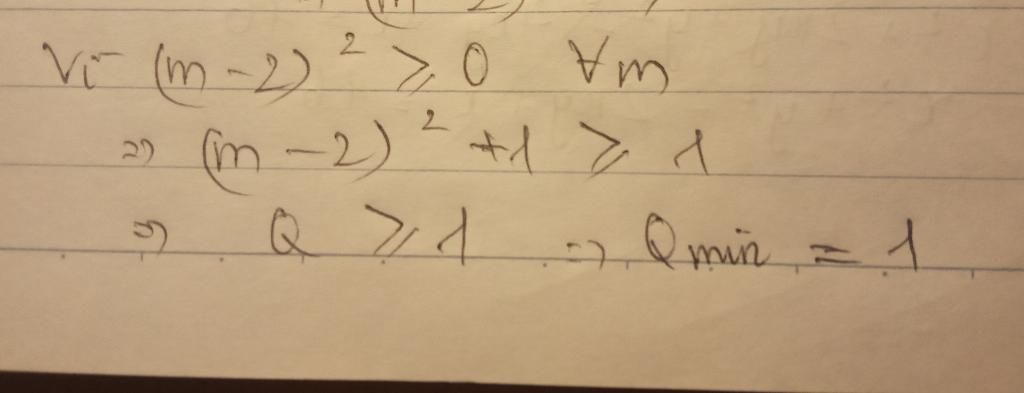 Vì (m - 2)² ≥ 0 ∀m
⇒ (m - 2)² + 1 ≥ 1
⇒ Q ≥ 1 ⇒ Qmin = 1